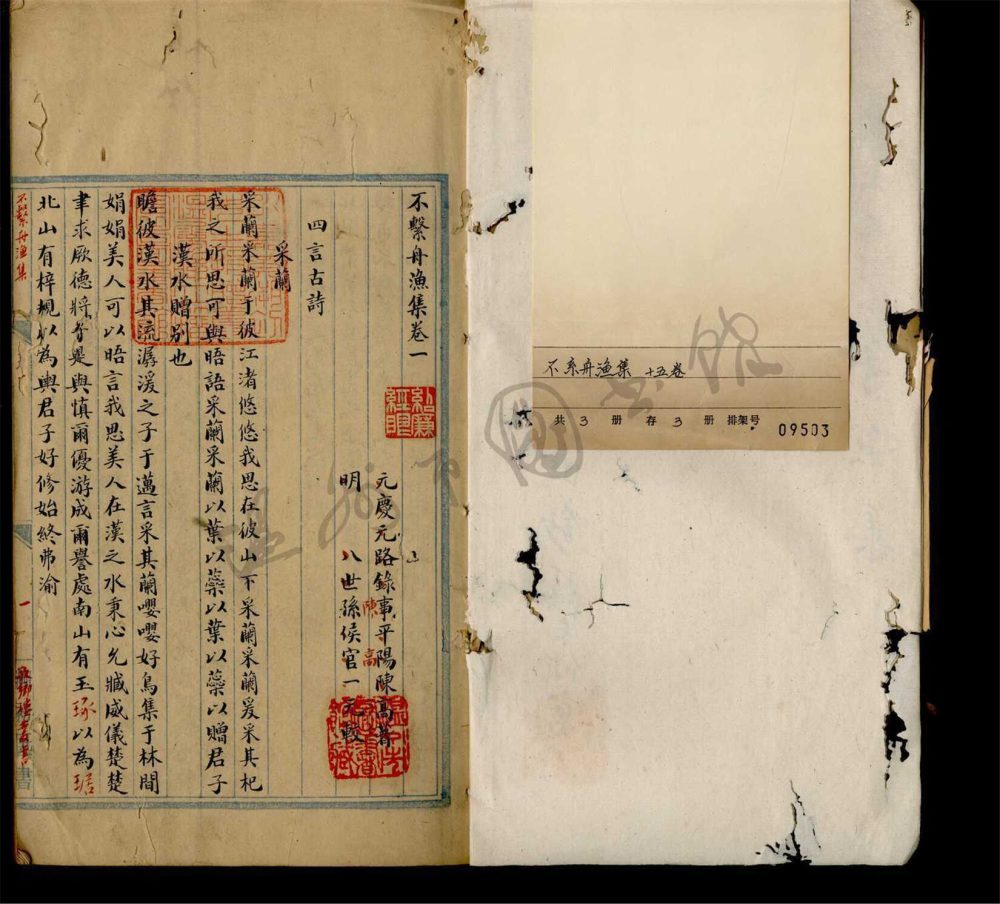 不繫舟漁集卷一
元慶元路錄事平陽陳高著
明 八世孫侯官一元較
陳高
四言古詩
采蘭
采蘭采蘭于彼江渚悠悠我思在彼山下采蘭采蘭爰采其杞
我之所思可與晤語采蘭采蘭以葉以蘂以葉以蘂以贈君子
漢水贈別也
瞻彼漢水其流潺湲之子于邁言采其蘭嚶嚶好鳥集于林間
娟娟美人可以晤言我思美人在漢之水秉心允臧威儀楚楚
聿求厥德將者是與慎爾優游成爾譽處南山有玉琢以為琚
北山有梓規以為輿君子好修始終弗渝
不繫舟漁集
一
不系舟漁集 十五卷
共 3 冊 存 3 冊 排架号 09503